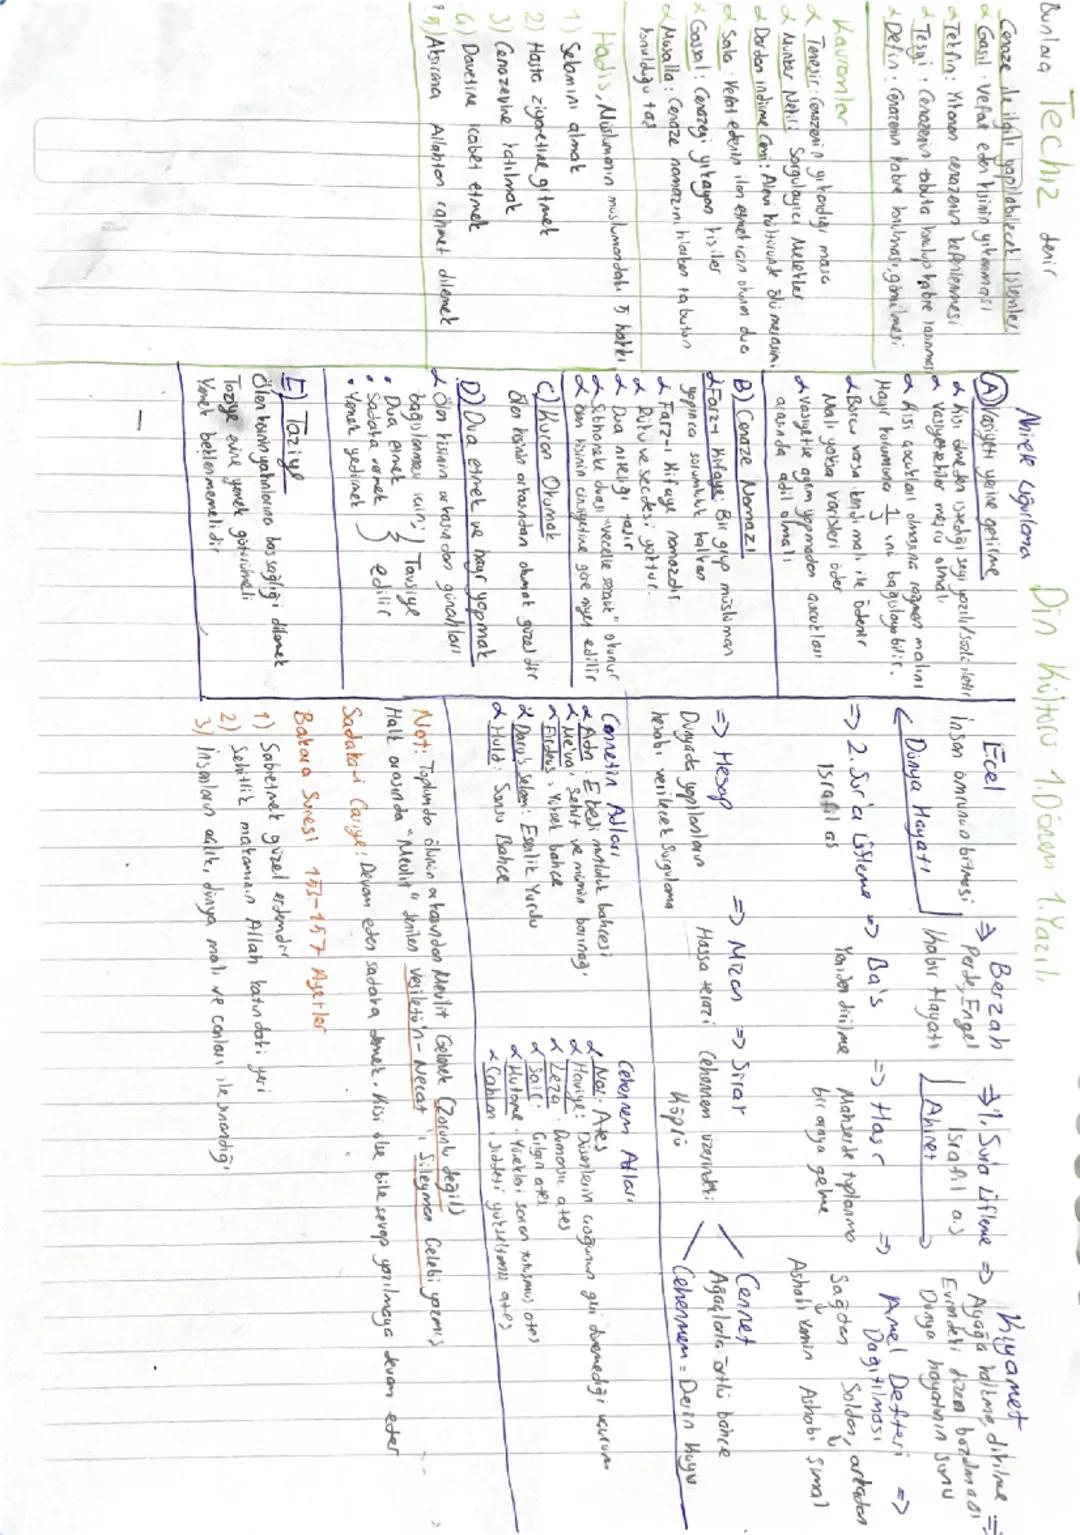 Din Kültürü 1.Dönem 1.Yazılı
Ecel => Berzah => 1. Sura Üfleme => Kıyamet
İnsan ömrünün bitmesi
Perde, Engel
İsrafil a.s
Ayağa kalkma, dikilme =>
Evrendeki düzen bozulması
Dünya hayatının sonu
Dünya Hayatı
Kabir Hayatı
Ahiret
=> 2. Sur'a Üfleme => Ba's => Haşr => Amel Defteri =>
Dağıtılması
İsrafil as
Yeniden dirilme
Mahşerde toplanma
bir araya gelme
Sağdan Soldan, arkadan
Ashabı yemin Ashabı şimal
=> Hesap => Mizan => Sırat
Dünyada yapılanların
hesabı verilecek Sorgulama
Hassa terazi
Cehennem üzerindeki
Köprü
Cennet
Ağaçlarla örtülü bahçe
Cehennem = Derin Kuyu
Cennetin Adları
Adn: Ebedi mutluluk bahçesi
Me'va: Şehit ve mümin barınağı
Firdevs: Yüksek bahçe
Darü's selam: Esenlik Yurdu
Huld: Sonsuz Bahçe
Cehennem Adları
Nar: Ateş
Haviye: Düşenlerin çoğunun geri dönemediği uçurum
Leza: Dumansız ateş
Sair: Çılgın ateş
Hutame: Yürekleri saran tutuşmuş ateş
Cahim: şiddeti yükseltilmiş ateş
Not: Toplumda ölünün arkasından Mevlit Gelenek (Zorunlu değil)
Halk arasında "Mevlit" denilen Vesiletü'n-Necat'ı Süleyman Çelebi yazmış
Sadaka-i Cariye: Devam eden sadaka demek. Kişi ölse bile sevap yazılmaya devam eder
Bakara Suresi 153-157 Ayetler
1) Sabretmek güzel erdemdir
2) Şehitlik makamının Allah katındaki yeri
3) İnsanların açlık, dünya malı ve canları ile sınandığı
Ahirete Uğurlama
A) Vasiyeti yerine getirme
Kişi ölmeden istediği şeyi yazılı/sözlü iletir
Vasiyettekiler meşru olmalı
Kişi çocukları olmasına rağmen malını
Hayır kurumuna 1/3 ünü bağışlayabilir.
Borcu varsa kendi malı ile ödenir
Malı yoksa varisleri öder
Vasiyette ayrım yapmadan çocukları
arasında adil olmalı
B) Cenaze Namazı
Farz-ı Kifaye: Bir grup müslüman
yapınca sorumluluk kalkan
Farz-ı Kifaye namazdır
Rükü ve secdesi yoktur.
Dua niteliği taşır
Sübhaneke duası "vecelle senaük" okunur
Ölen kişinin cinsiyetine göre niyet edilir
C) Kuran Okumak
Ölen kişinin arkasından okumak güzeldir
D) Dua etmek ve hayır yapmak
Ölen kişinin arkasından günahları
bağışlanması için;
• Dua etmek
• Sadaka vermek
• Yemek yedirmek
Tavsiye
edilir
E) Taziye
Ölen kişinin yakınlarına başsağlığı dilemek
Taziye evine yemek götürülmeli
Yemek beklenmemelidir
Bunlara Techiz denir
Cenaze ile ilgili yapılabilecek İşlemler
Gasil: Vefat eden kişinin yıkanması
Tekfin: Yıkanan cenazenin kefenlenmesi
Teşyi: Cenazenin tabuta konulup kabre taşınması
Defin: Cenazenin kabre konulması, gömülmesi
Kavramlar
Teneşir: Cenazenin yıkandığı masa
Münker Nekir: Sorgulayıcı Melekler
Dardan indirme Cemi: Alevi kültüründe ölü merasimi
Sala: Vefat edenin ilan etmek için okunan dua
Gassal: Cenazeyi yıkayan kişiler
Musalla: Cenaze namazını kılarken tabutun
konulduğu taş
Hadis, Müslümanın müslümandaki 5 hakkı
1) Selamını almak
2) Hasta ziyaretine gitmek
3) Cenazesine katılmak
4) Davetine icabet etmek
5) Aksırana Allahtan rahmet dilemek